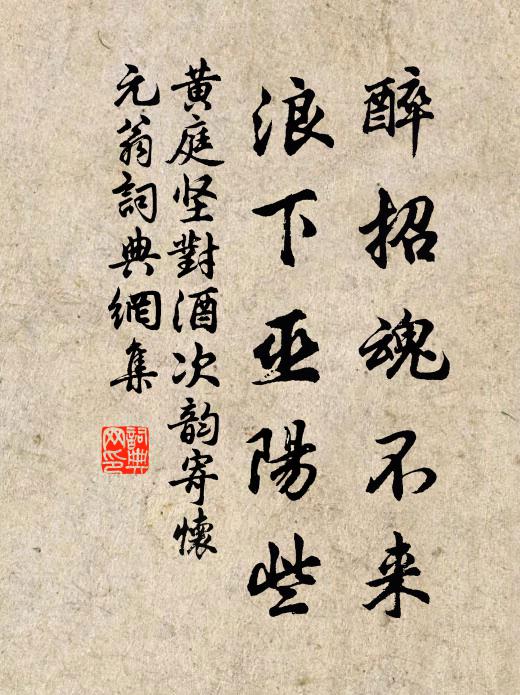 醉招魂不来
浪下巫陽些
黃庭坚對酒次韵寄懷
元翁詞典網集
詞典网印